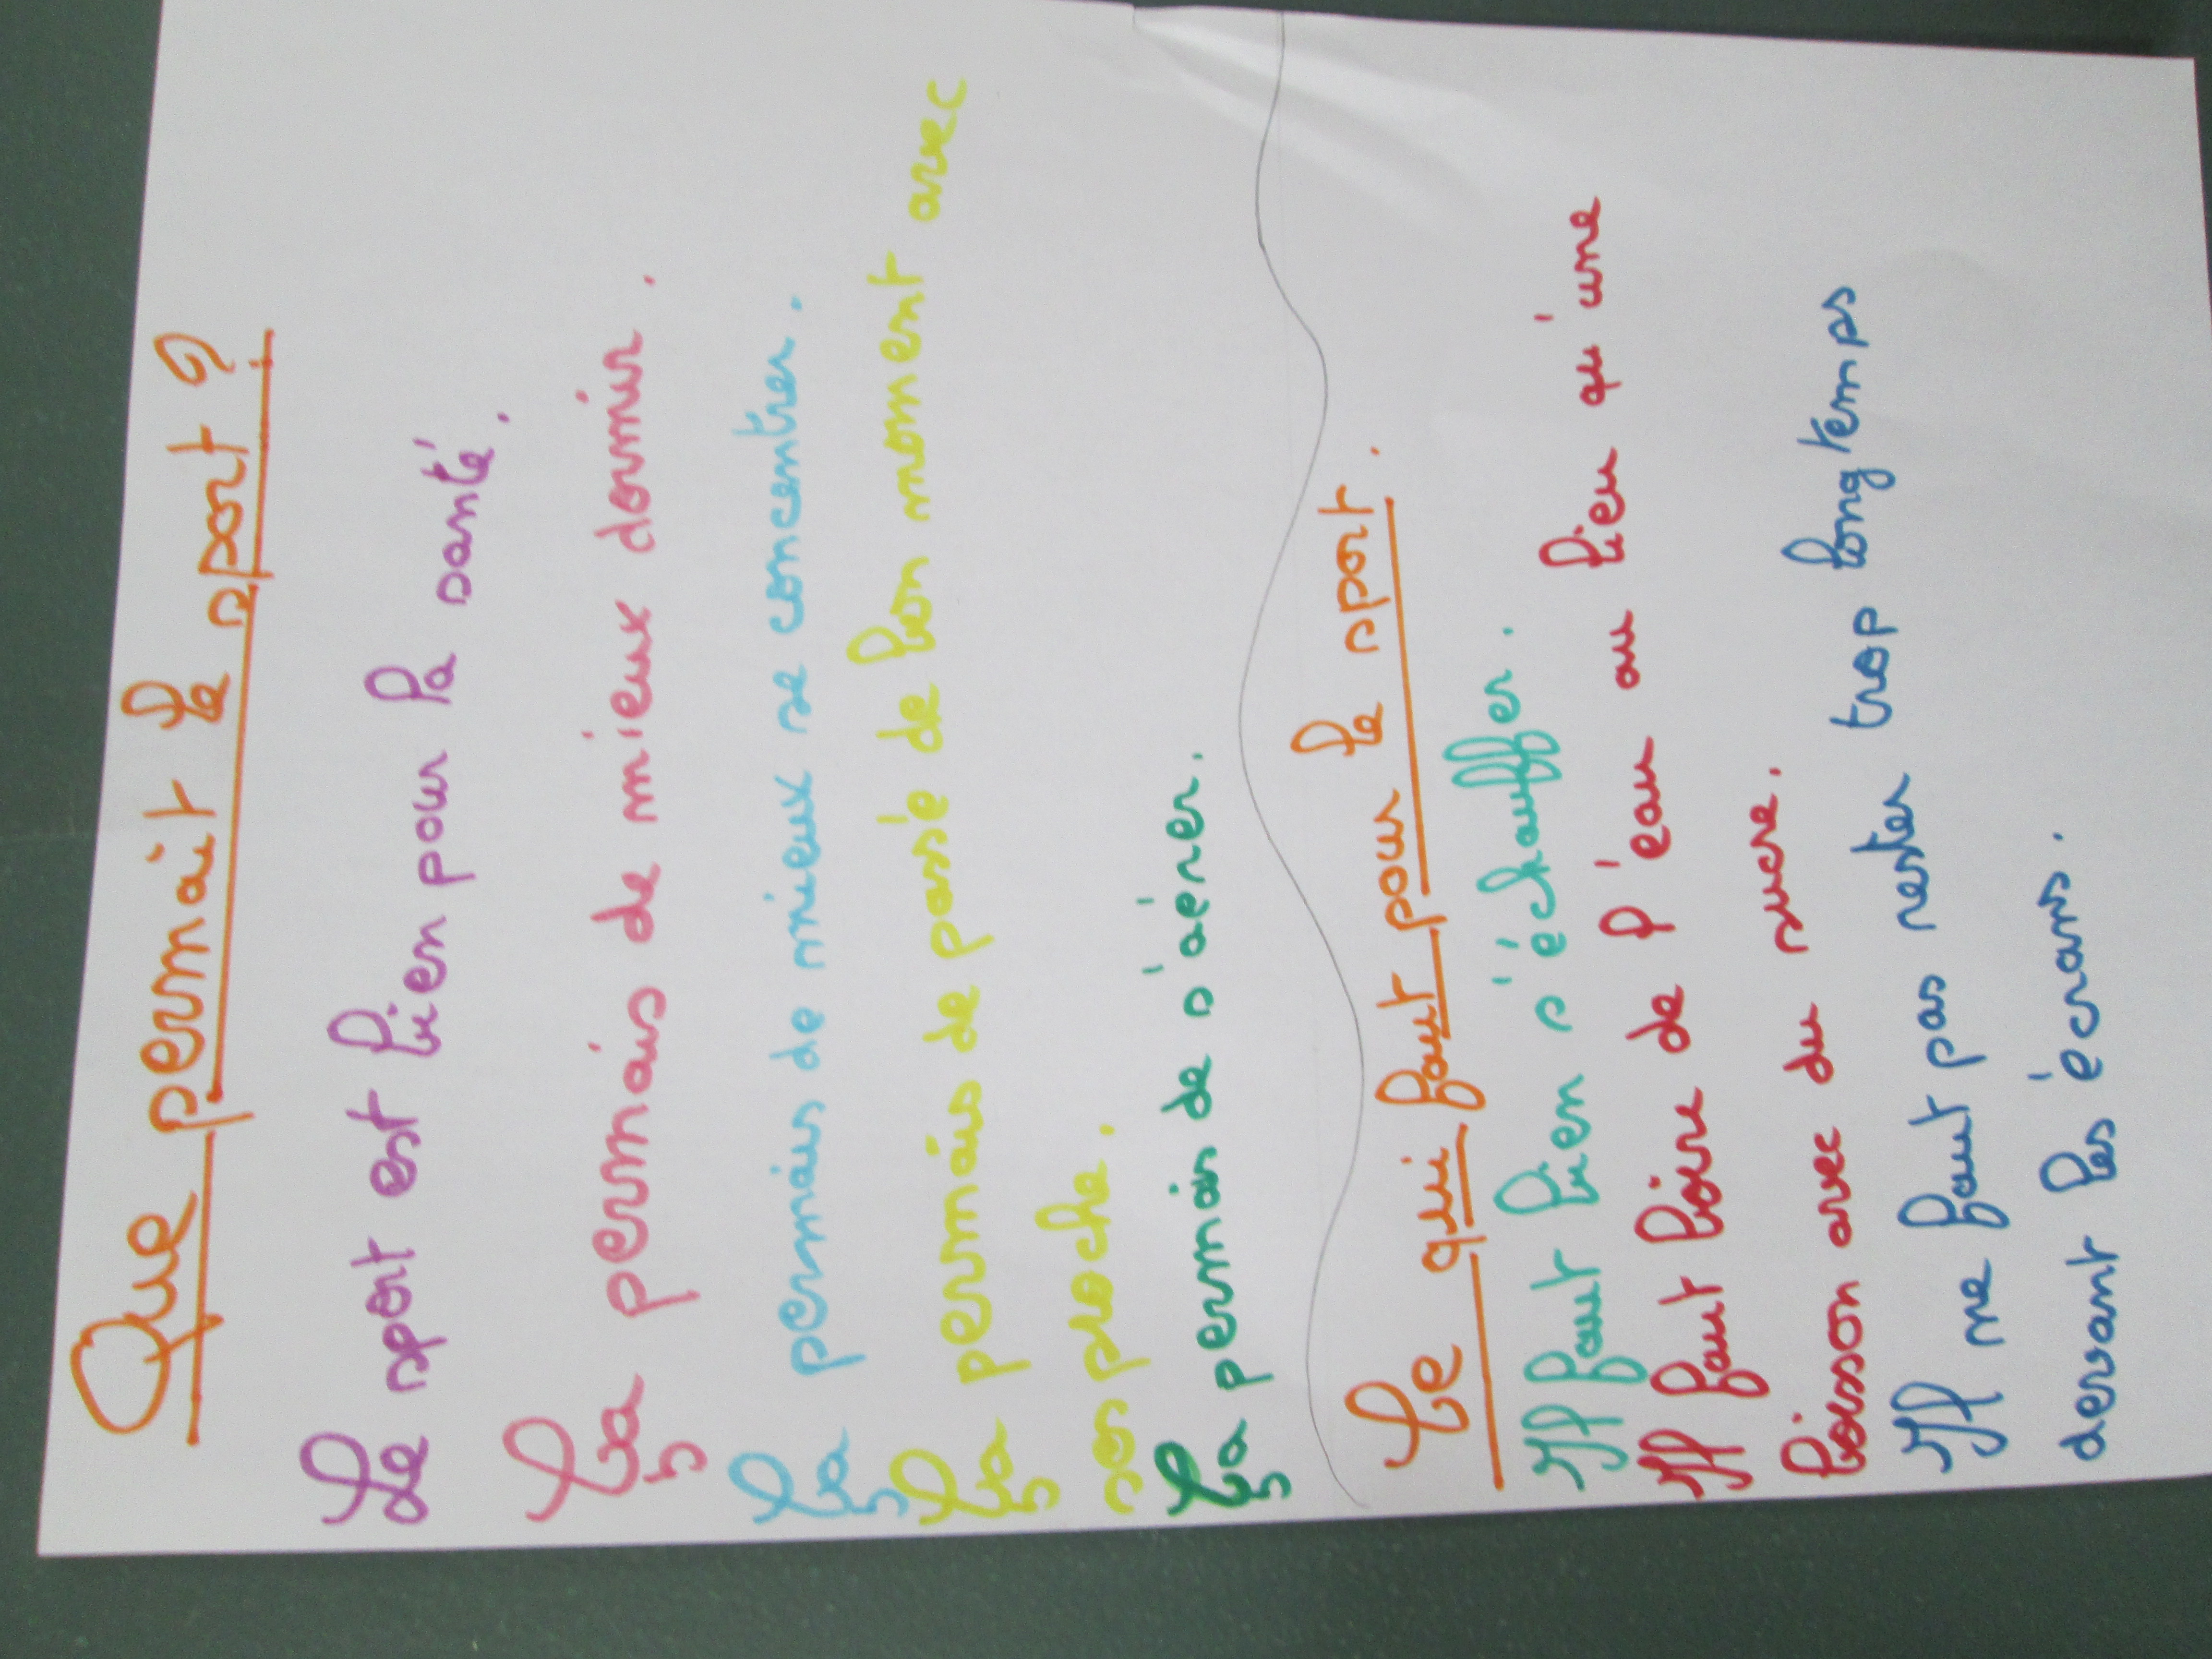 Que permait le sport ?
Le sport est bien pour la santé.
Ça permais de mieux dormir.
Ça permais de mieux se concentrer.
Ça permais de passé de bon moment avec
ses proche.
Ça permais de s'aérer.
Ce qui faut pour le sport.
Il faut bien s'échauffer.
Il faut boire de l'eau au lieu qu'une
boisson avec du sucre.
Il ne faut pas rester trop longtemps
devant les écrans.